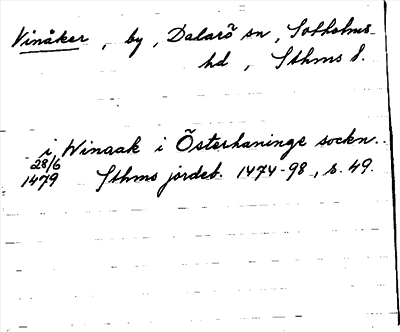 Vinåker, by, Dalarö sn, Sotholms-
hd, Sthms l.
i Winaak i Österhaninge sockn..
28/6
1479 Sthms jordeb. 1474-98, s. 49.